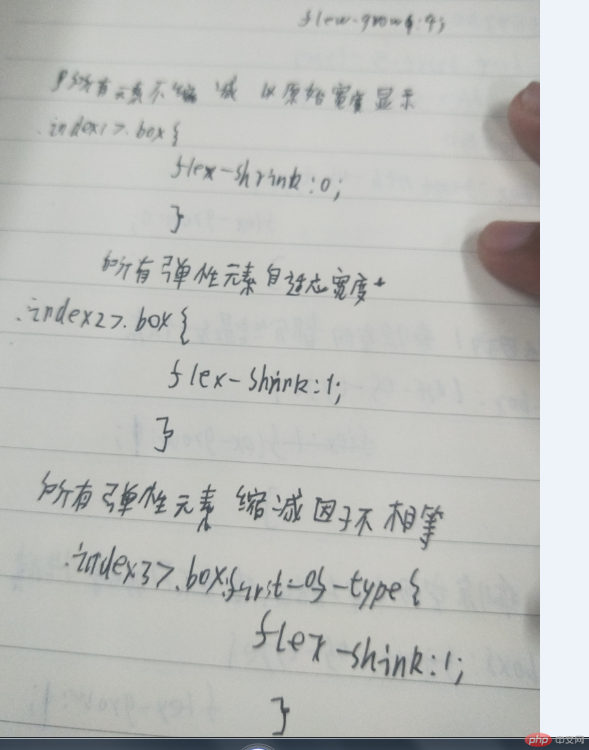 flex-grow:4;
所有元素不缩减 以原始宽度显示
.index1>.box{
flex-shrink:0;
}
所有弹性元素自适应宽度
.index2>.box{
flex-shink:1;
}
所有弹性元素 缩减因子不相等
.index3>.box:first-of-type{
flex-shink:1;
}
php中文网